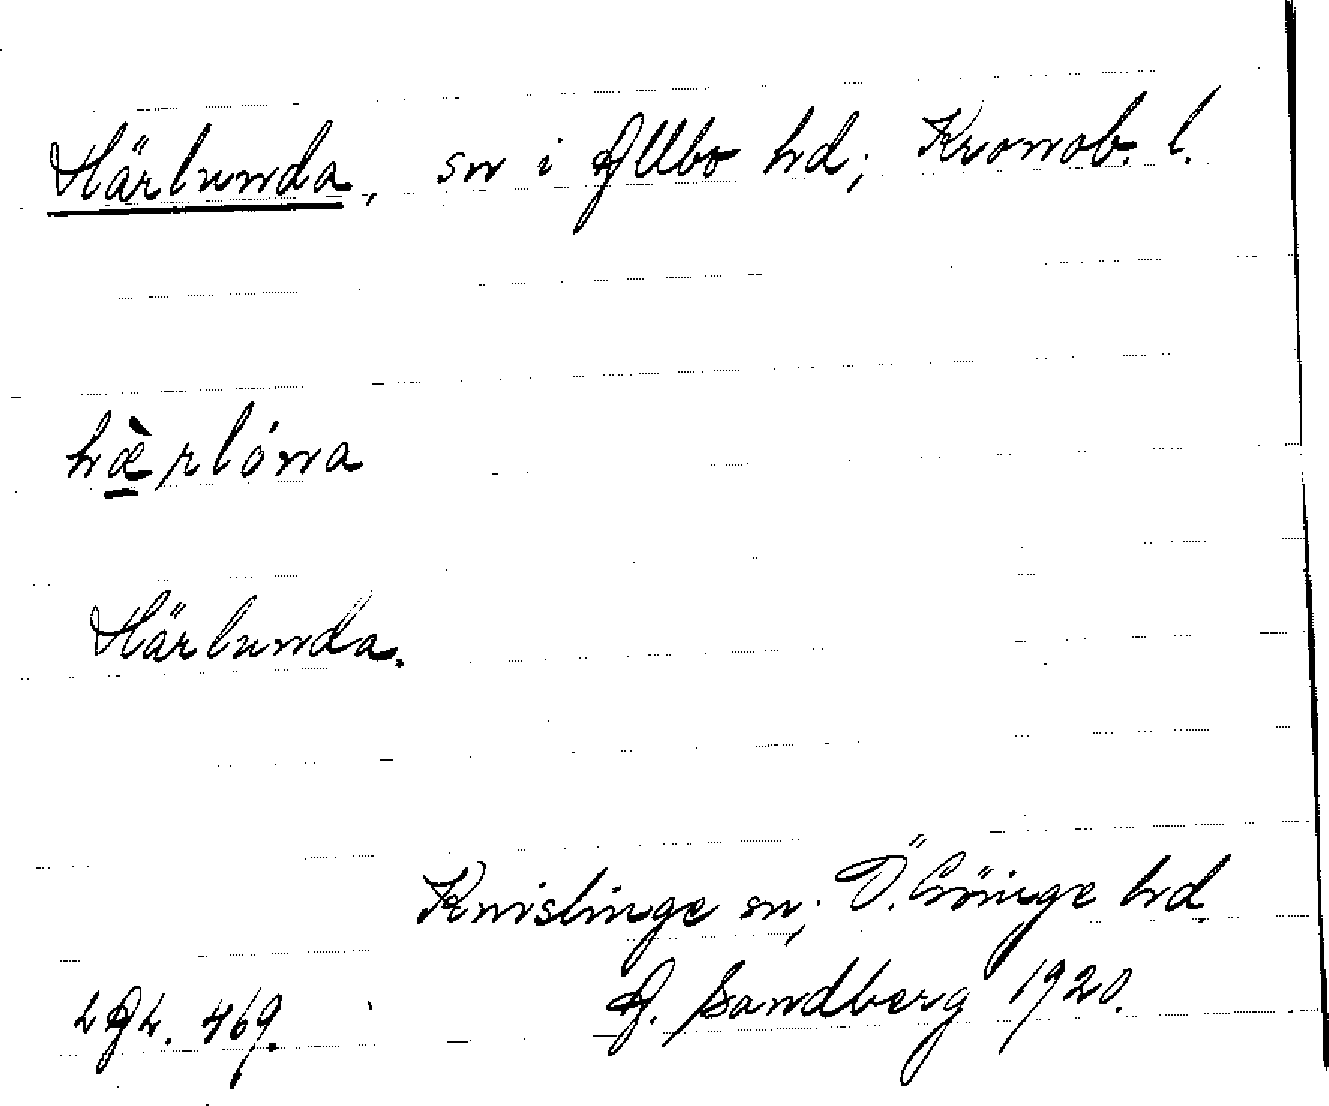 Härlunda, sn i Allbo hd; Kronob. l.
hæ̀rlóna
Härlunda.
Knislinge sn; Ö. Göinge hd
LAL. 469. A. Sandberg 1920.